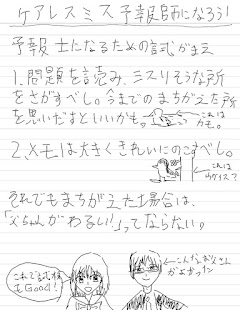 ケアレスミス予報師になろう!
予報士になるための試がまえ
1.問題を読み、ミスりそうな所
をさがすべし。今までのまちがえた所
を思いだすといいかも。
これは
カモ。
2、メモは大きくきれいにのこすべし。
これは
ウグイス?
それでもまちがえた場合は、
「父ちゃんがわるい!」ってならない。
これで試検
もGood!
こんなお父さん
がよかった